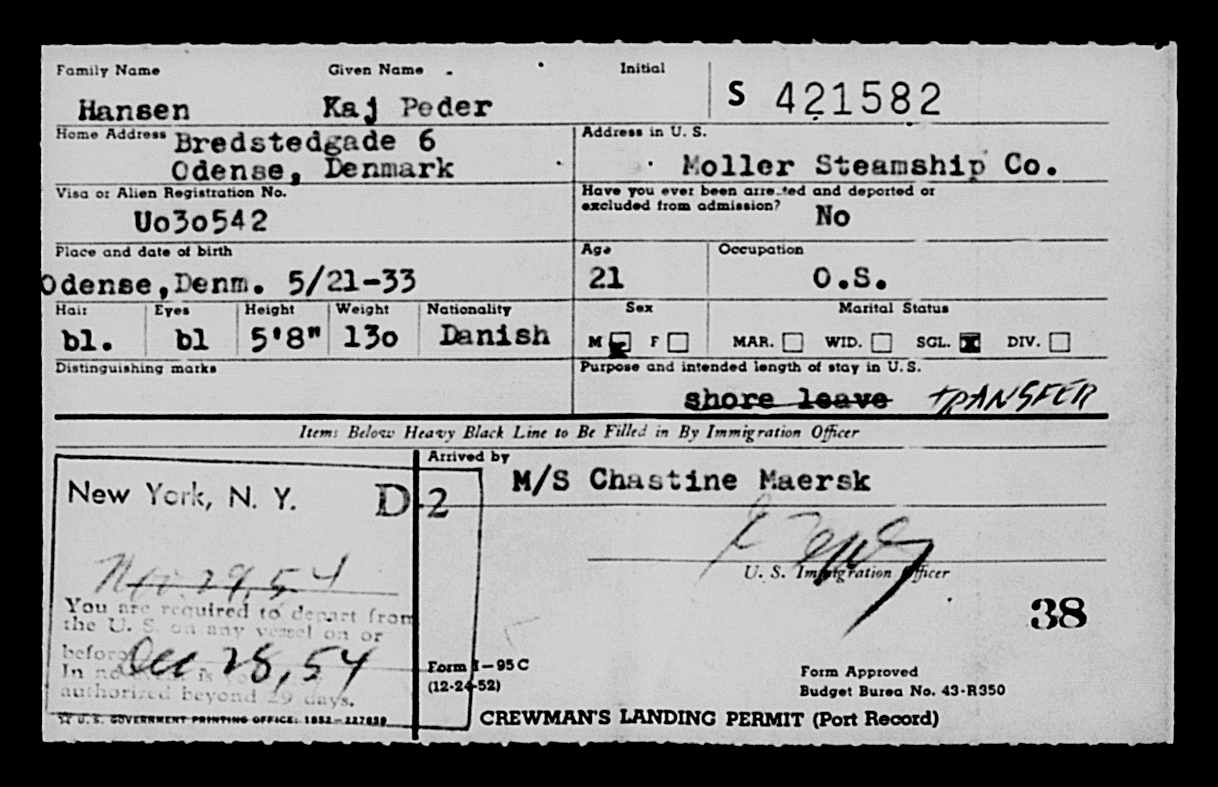 Family Name Given Name Initial
Hansen Kaj Peder S 421582
Home Address Bredstedgade 6
Odense, Denmark
Address in U. S.
Moller Steamship Co.
Visa or Alien Registration No.
Uo3o542
Have you ever been arrested and deported or
excluded from admission?
No
Place and date of birth
Odense,Denm. 5/21-33
Age
21
Occupation
O.S.
Hair Eyes Height Weight Nationality
bl. bl 5'8" 13o Danish
Sex
M F
Marital Status
MAR. WID. SGL. DIV.
Distinguishing marks
Purpose and intended length of stay in U.S.
shore leave TRANSFER
Items Below Heavy Black Line to Be Filled in By Immigration Officer
New York, N. Y. D-2
Nov. 29, 54
You are required to depart from
the U. S. on any vessel on or
before Dec 28, 54
In no is
authorized beyond 29 days.
U. S. GOVERNMENT PRINTING OFFICE: 1952
Arrived by
M/S Chastine Maersk
U. S. Immigration Officer
38
Form I-95 C
(12-24-52)
Form Approved
Budget Burea No. 43-R350
CREWMAN'S LANDING PERMIT (Port Record)